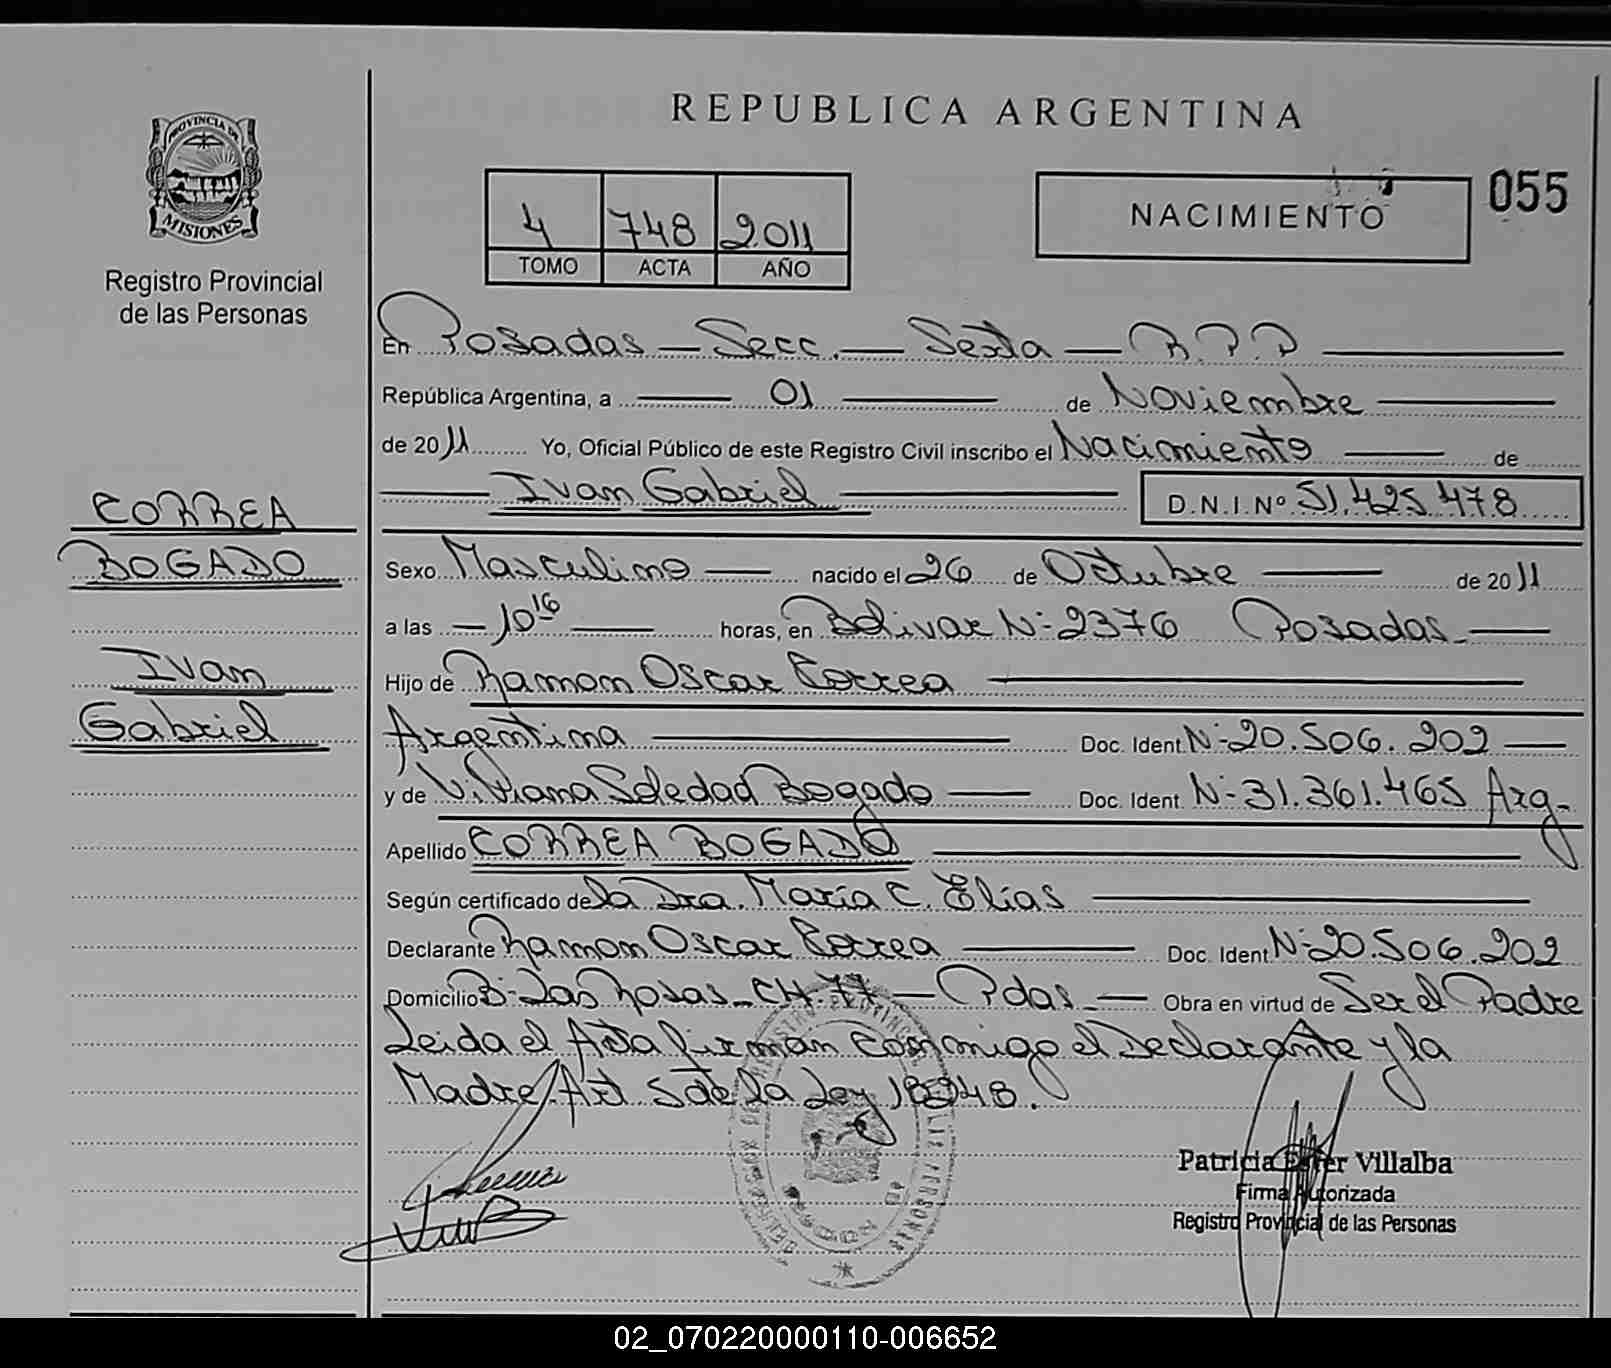 REPUBLICA ARGENTINA
PROVINCIA DE
MISIONES
Registro Provincial
de las Personas
4 748 2011
TOMO ACTA AÑO
NACIMIENTO
055
En Posadas — Secc. — Sexta — R.P.P
República Argentina, a — 01 — de Noviembre
de 2011 Yo, Oficial Público de este Registro Civil inscribo el Nacimiento — de
Ivan Gabriel — D.N.I.Nº 51.425.478
CORREA
BOGADO
Ivan
Gabriel
Sexo Masculino — nacido el 26 de Octubre — de 2011
a las — 10 16 — horas, en Bolivar N: 2376 Posadas —
Hijo de Ramon Oscar Correa —
Argentina — Doc. Ident. N: 20.506.202 —
y de Viviana Soledad Bogado — Doc. Ident. N: 31.361.465 Arg.
Apellido CORREA BOGADO —
Según certificado de la Dra. María C. Elías —
Declarante Ramon Oscar Correa — Doc. Ident. N: 20.506.202
Domicilio B: Las Rosas - CH. 77 — Pdas — Obra en virtud de Ser el Padre
Leida el Acta firman conmigo el Declarante y la
Madre. Art 5 de la Ley 18248.
Patricia Ester Villalba
Firma Autorizada
Registro Provincial de las Personas
02_070220000110-006652